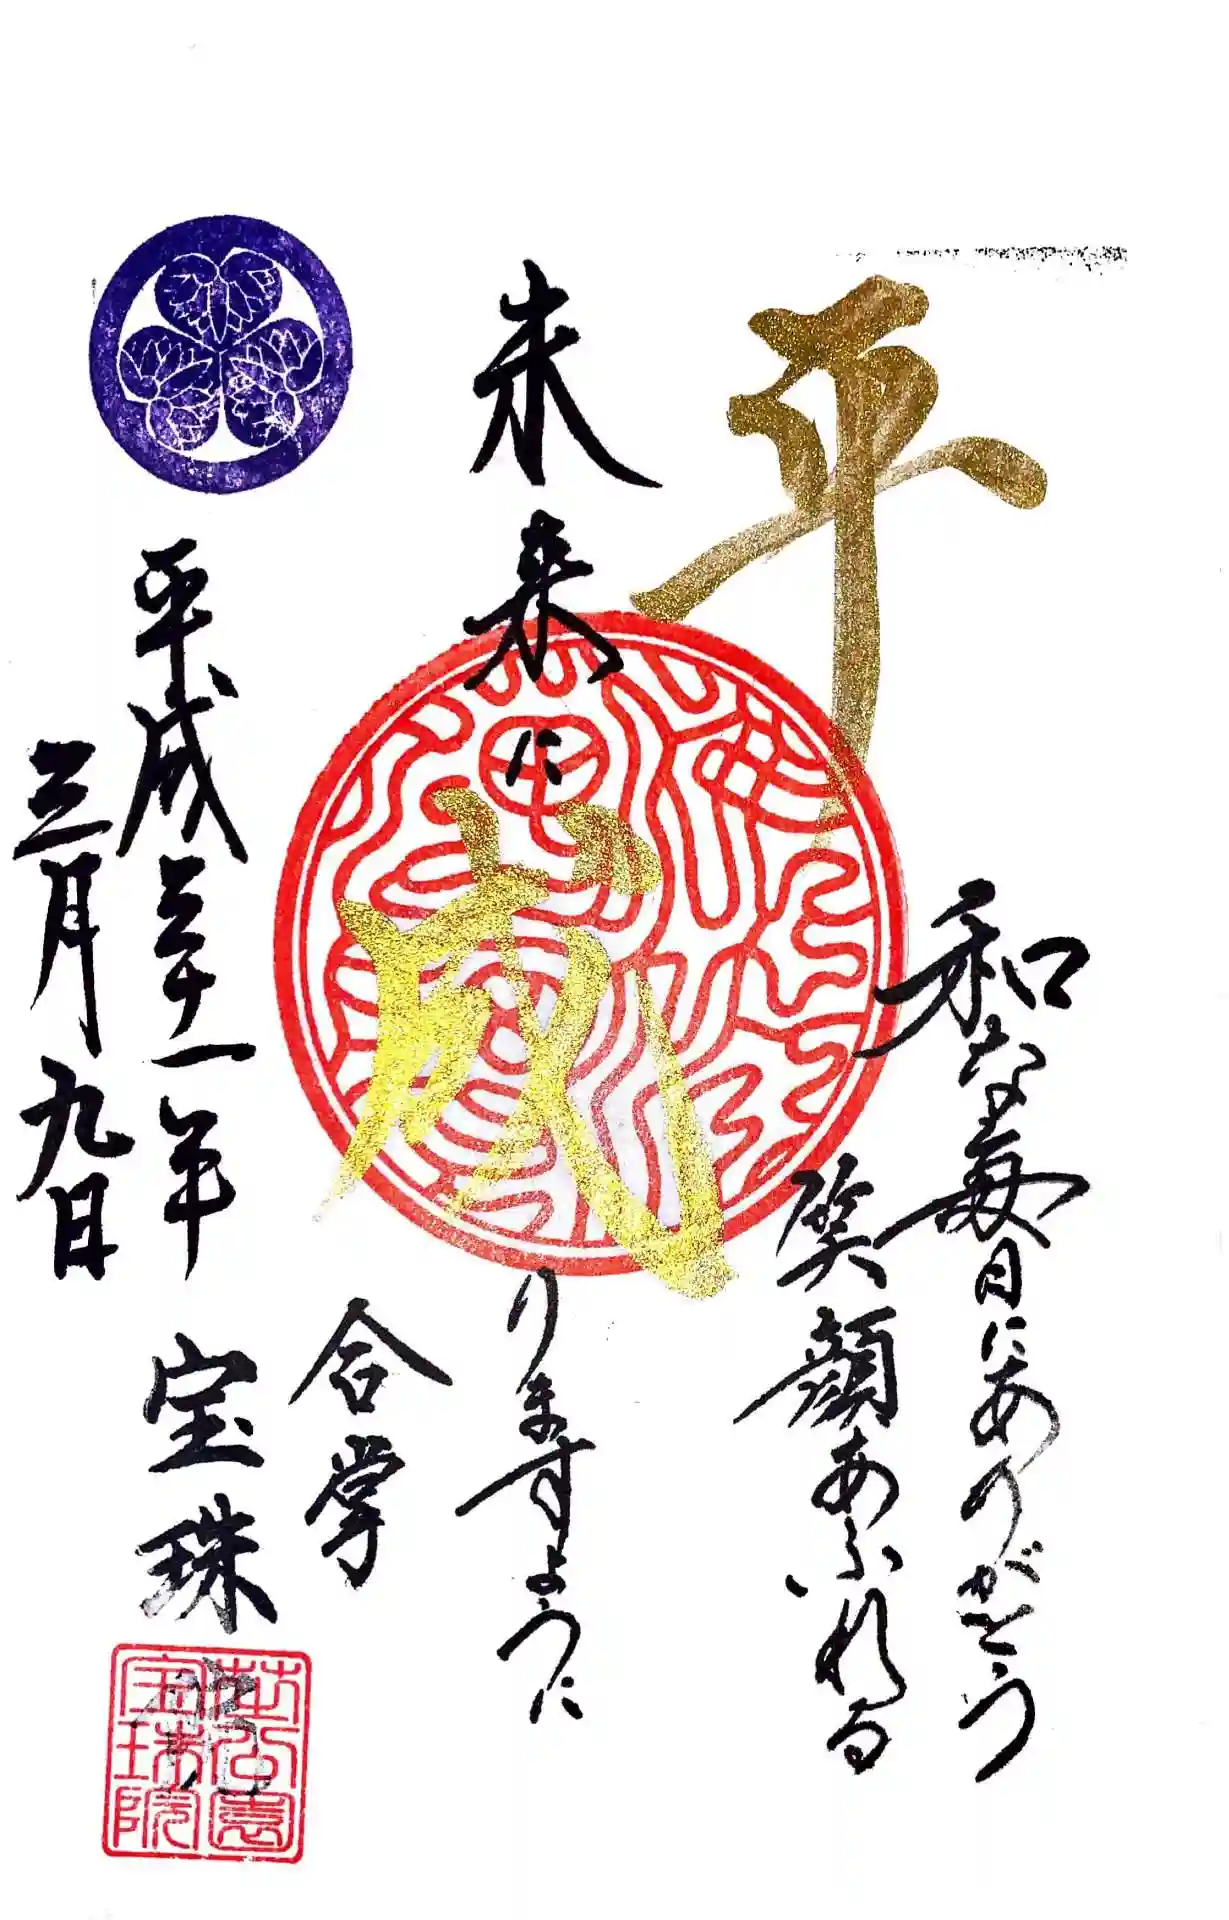 平和な毎日にありがとう
笑顔あふれる
未来に成りますように
合掌
平成三十一年 宝珠院
三月九日
芝公園
宝珠院